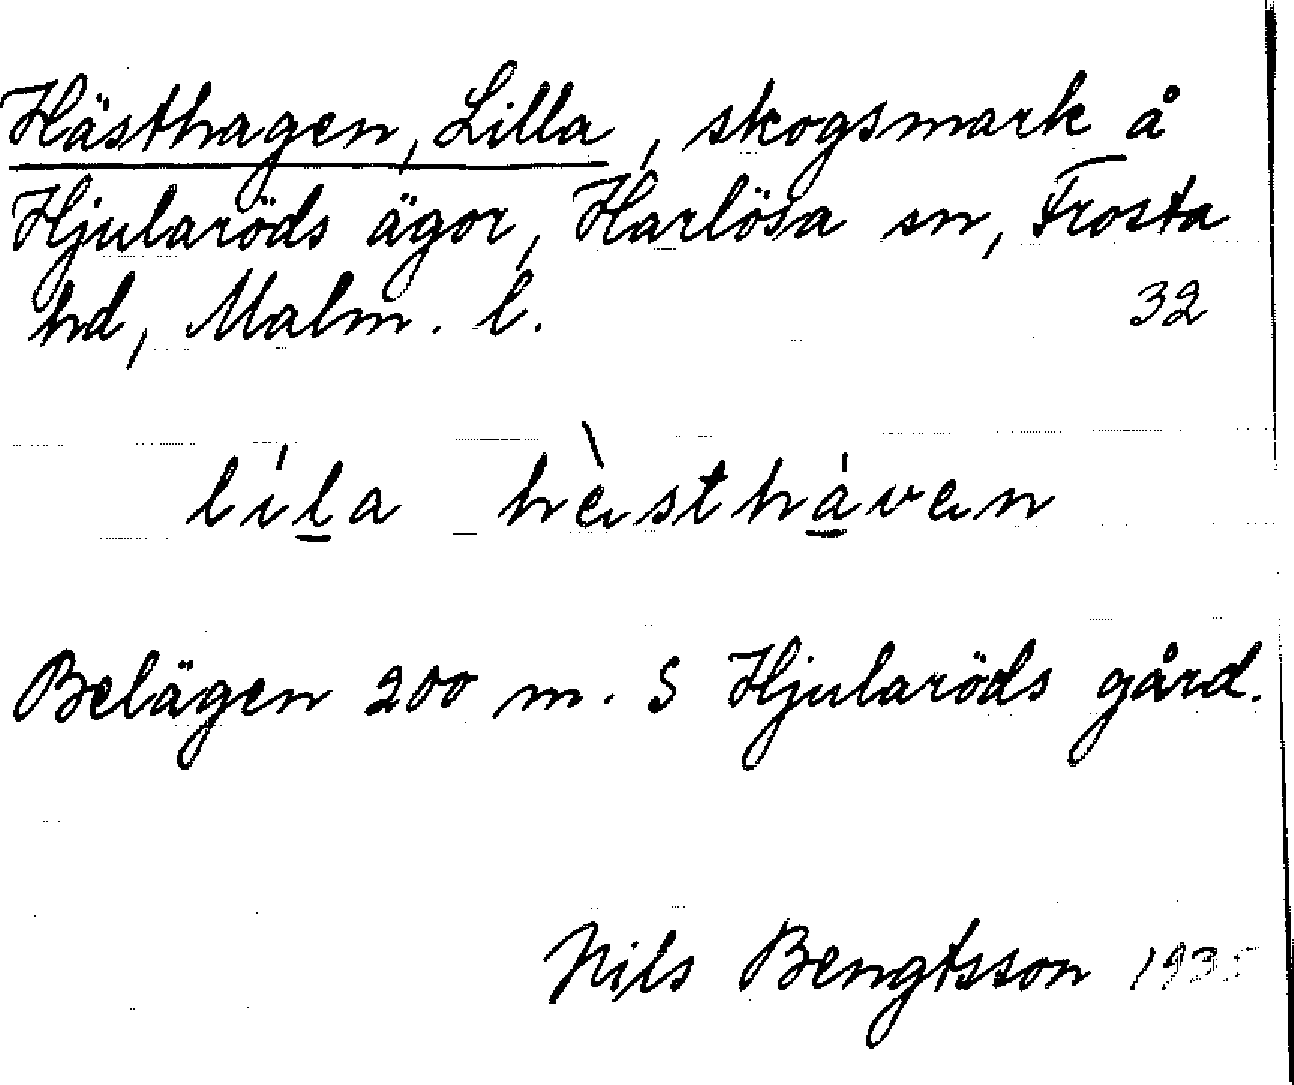 Hästhagen, Lilla, skogsmark å
Hjularöds ägor, Harlösa sn, Frosta
hd, Malm. l. 32
líl̲a hὲsthá̲vən
Belägen 200 m. S Hjularöds gård.
Nils Bengtsson 1935